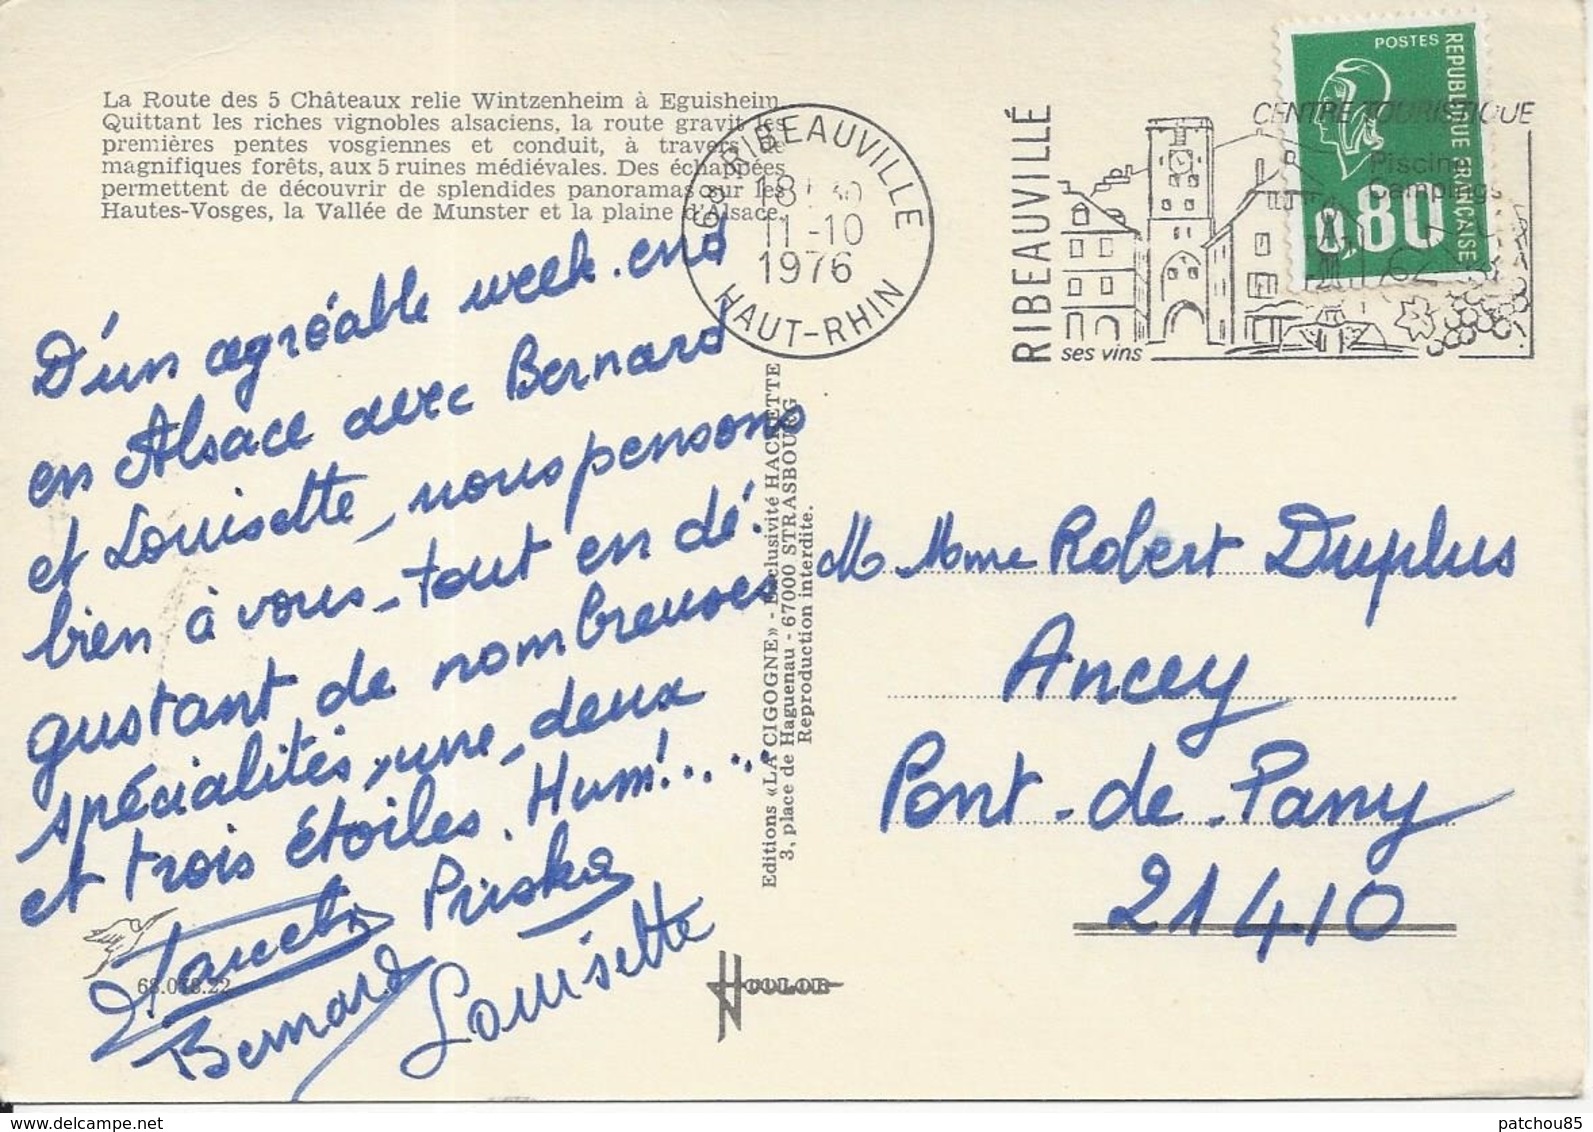 La Route des 5 Châteaux relie Wintzenheim à Eguisheim
Quittant les riches vignobles alsaciens, la route gravit les
premières pentes vosgiennes et conduit, à travers de
magnifiques forêts, aux 5 ruines médiévales. Des échappées
permettent de découvrir de splendides panoramas sur les
Hautes-Vosges, la Vallée de Munster et la plaine d'Alsace.
68 RIBEAUVILLE
18
11-10
1976
HAUT-RHIN
RIBEAUVILLÉ
CENTRE TOURISTIQUE
Piscine
Campings
ses vins
POSTES
REPUBLIQUE FRANÇAISE
0,80
D'un agréable week-end
en Alsace avec Bernard
et Louisette, nous pensons
bien à vous - tout en dé-
gustant de nombreuses
spécialités, une, deux
et trois étoiles. Hum!.....
Priska
Bernard
Louisette
68.018.22
Editions «LA CIGOGNE» - Exclusivité HACHETTE
3, place de Haguenau - 67000 STRASBOURG
Reproduction interdite.
COLOR
M. Mme Robert Duplus
Ancey
Pont-de-Pany
21410
patchou85